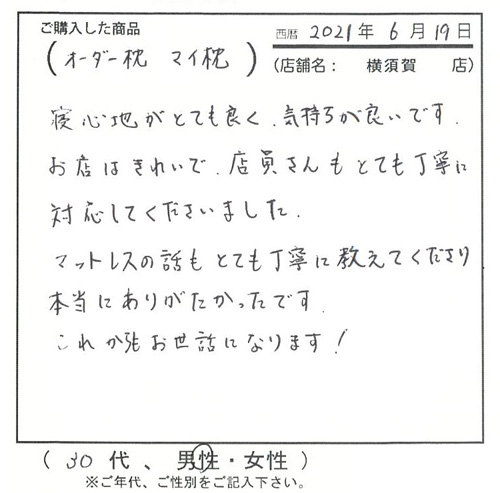 ご購入した商品
西暦 2021年 6月 19日
(オーダー枕 マイ枕)
(店舗名: 横須賀 店)
寝心地がとても良く、気持ちが良いです。
お店はきれいで、店員さんもとても丁寧に
対応してくださいました。
マットレスの話もとても丁寧に教えてくださり
本当にありがたかったです。
これからもお世話になります!
(30代、男性・女性)
※ご年代、ご性別をご記入下さい。